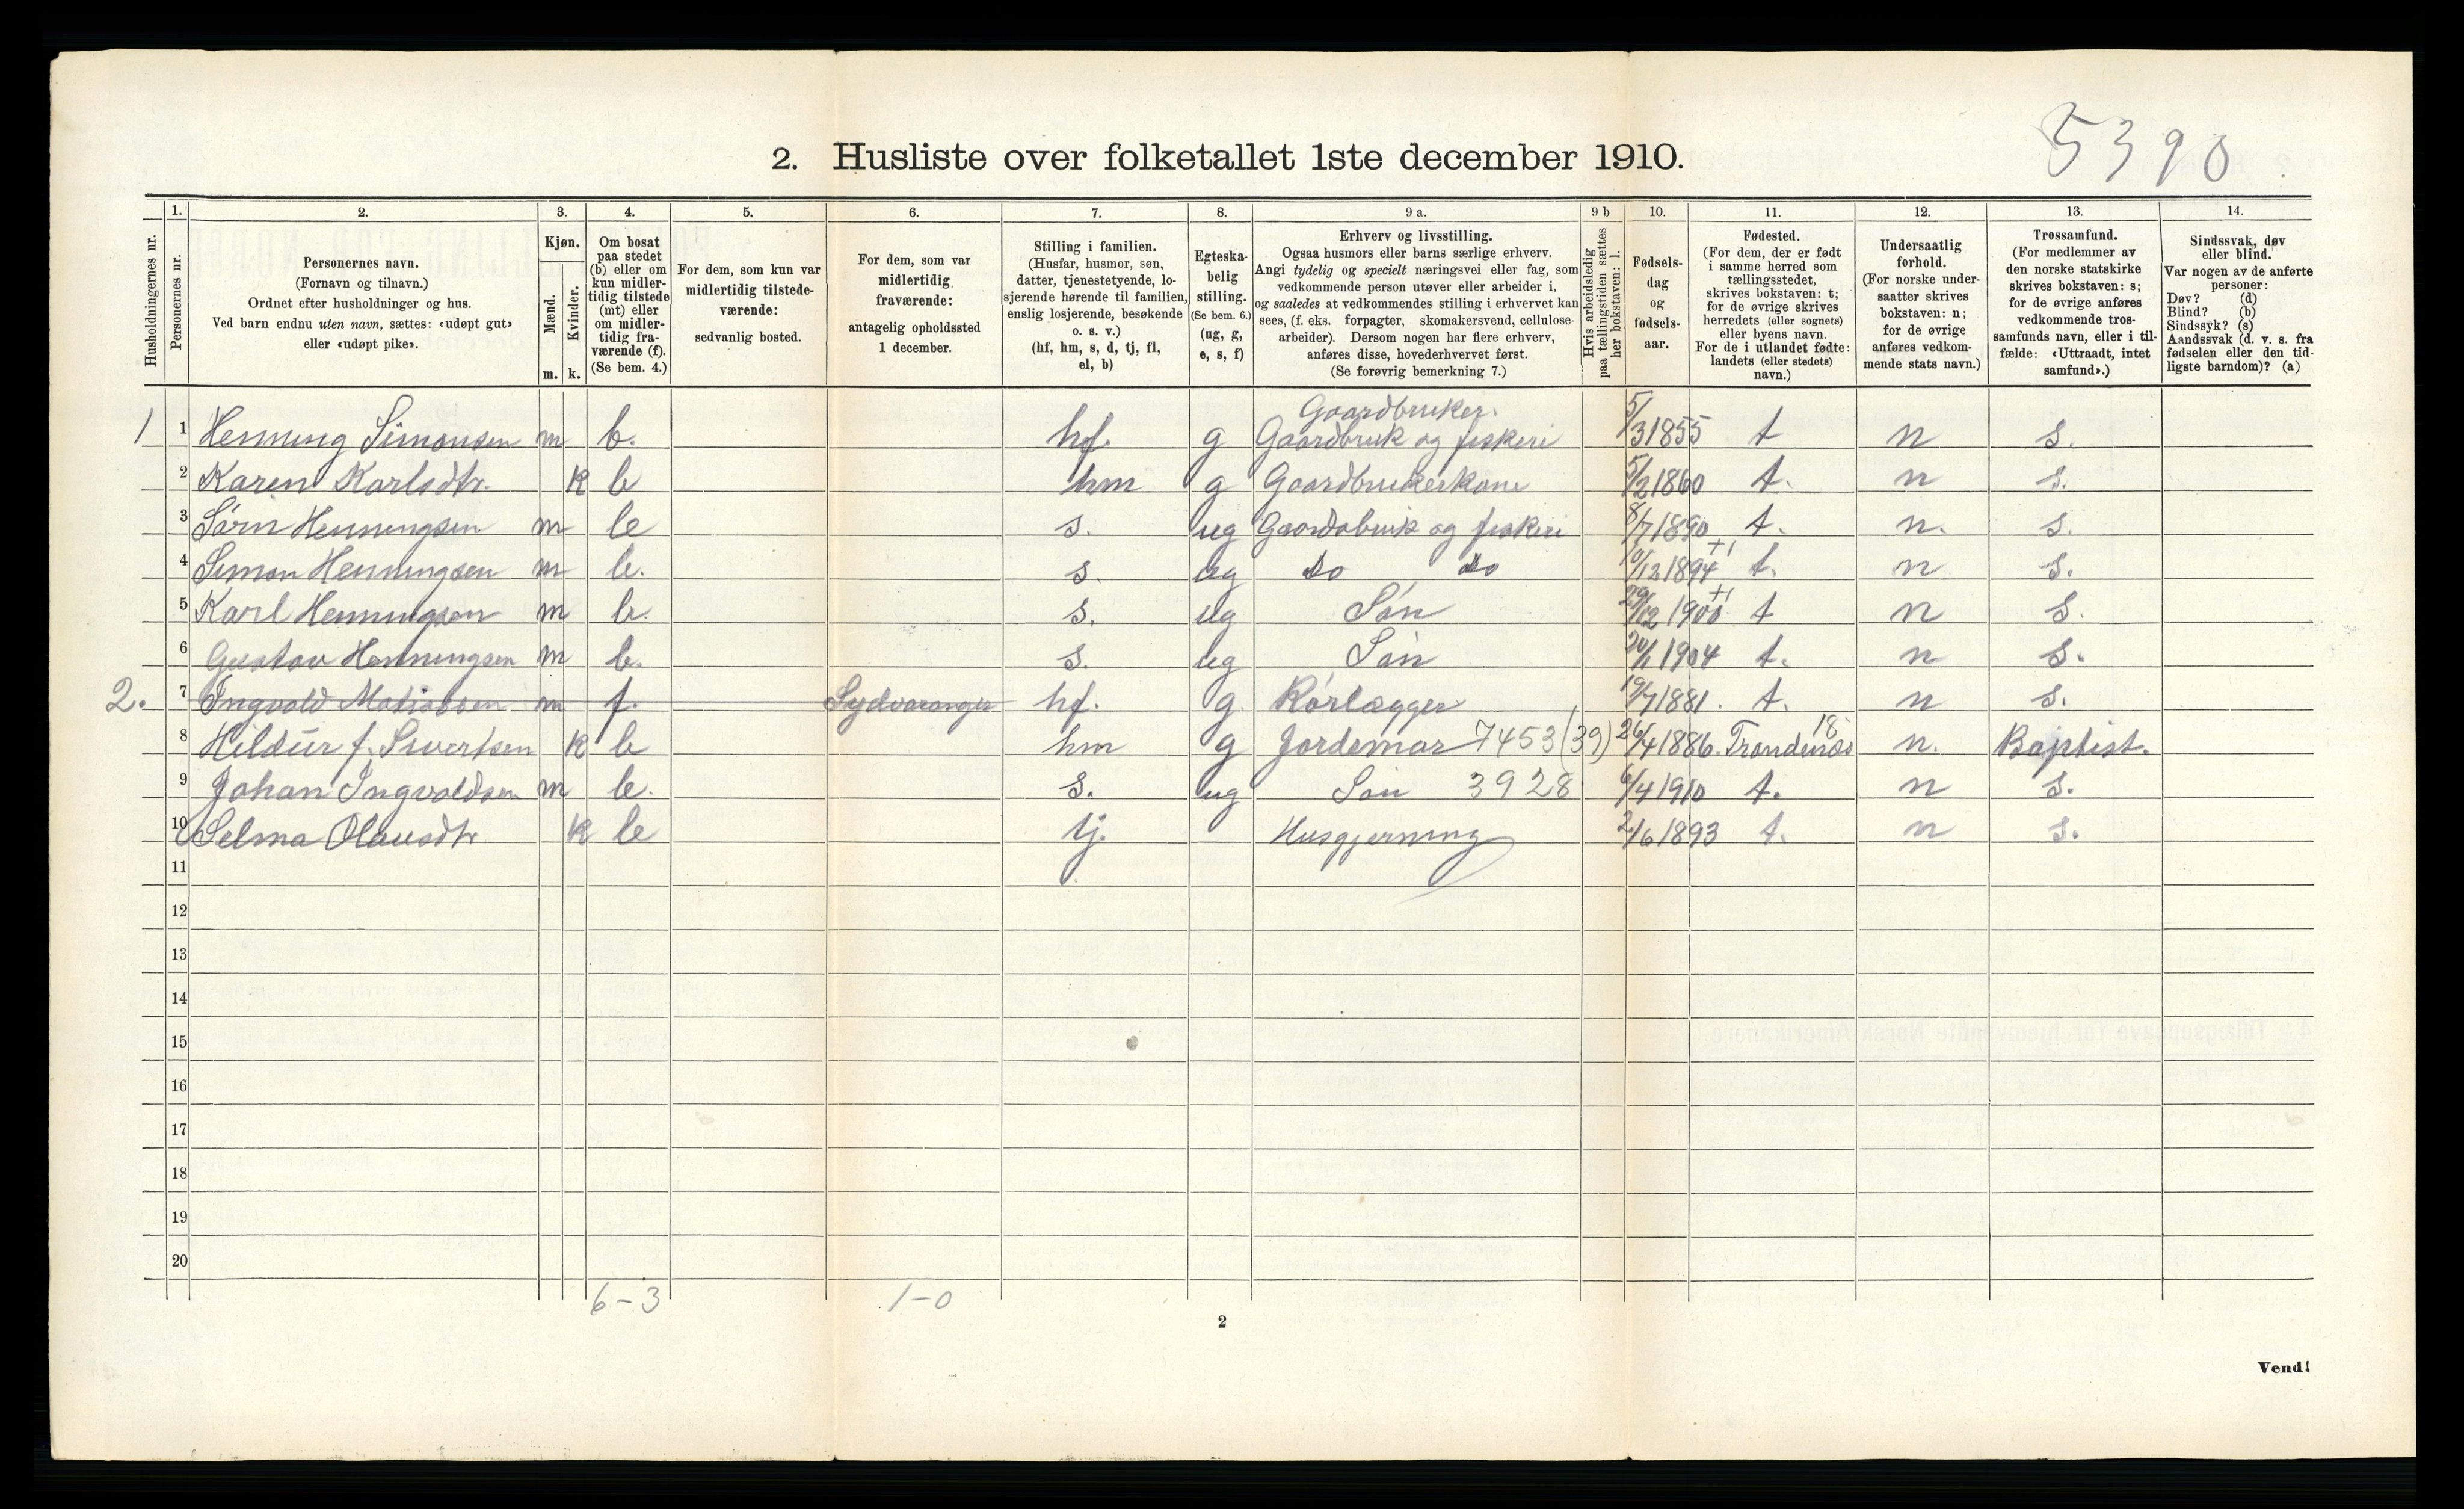 5390
2. Husliste over folketallet 1ste december 1910.
Husholdningernes nr.
1. Personernes nr.
2. Personernes navn. (Fornavn og tilnavn.) Ordnet efter husholdninger og hus. Ved barn endnu uten navn, sættes: «udøpt gut» eller «udøpt pike».
3. Kjøn. Mænd. m. Kvinder. k.
4. Om bosat paa stedet (b) eller om kun midlertidig tilstede (mt) eller om midlertidig fraværende (f). (Se bem. 4.)
5. For dem, som kun var midlertidig tilstedeværende: sedvanlig bosted.
6. For dem, som var midlertidig fraværende: antagelig opholdssted 1 december.
7. Stilling i familien. (Husfar, husmor, søn, datter, tjenestetyende, losjerende hørende til familien, enslig losjerende, besøkende o. s. v.) (hf, hm, s, d, tj, fl, el, b)
8. Egteskabelig stilling. (Se bem. 6.) (ug, g, e, s, f)
9 a. Erhverv og livsstilling. Ogsaa husmors eller barns særlige erhverv. Angi tydelig og specielt næringsvei eller fag, som vedkommende person utøver eller arbeider i, og saaledes at vedkommendes stilling i erhvervet kan sees, (f. eks. forpagter, skomakersvend, cellulosearbeider). Dersom nogen har flere erhverv, anføres disse, hovederhvervet først. (Se forøvrig bemerkning 7.)
9 b Hvis arbeidsledig paa tællingstiden sættes her bokstaven: l.
10. Fødselsdag og fødselsaar.
11. Fødested. (For dem, der er født i samme herred som tællingsstedet, skrives bokstaven: t; for de øvrige skrives herredets (eller sognets) eller byens navn. For de i utlandet fødte: landets (eller stedets) navn.)
12. Undersaatlig forhold. (For norske undersaatter skrives bokstaven: n; for de øvrige anføres vedkommende stats navn.)
13. Trossamfund. (For medlemmer av den norske statskirke skrives bokstaven: s; for de øvrige anføres vedkommende trossamfunds navn, eller i tilfælde: «Uttraadt, intet samfund».)
14. Sindssvak, døv eller blind. Var nogen av de anførte personer: Døv? (d) Blind? (b) Sindssyk? (s) Aandssvak (d. v. s. fra fødselen eller den tidligste barndom)? (a)
Gaardbruker.
1 1 Henning Simonsen m b. hf. g Gaardbruk og fiskeri 5/3 1855 t n s.
2 Karen Karlsdtr. k b hm g Gaardbrukerkone 5/2 1860 t. n s.
3 Sörn Henningsen m b s. ug Gaardabruk og fiskeri 8/7 1890 t. n. s.
4 Simon Henningsen m b. s. ug do do 10/12 1894 +1 t. n s.
5 Karl Henningsen m b. s. ug Sön 29/12 1900 +1 t n s.
6 Gustav Henningsen m b. s. ug Sön 24/1 1904 t. n s.
2. 7 Ingvald Matiassen m f. Sydvaranger hf. g. Rörlægger 19/7 1881. t. n s.
8 Hildur f. Sivertsen k b hm g Jordemor 7453 (39) 26/4 1886. Trondenæs 18 n. Baptist.
9 Johan Ingvaldsen m b. s. ug Sön 3928 6/4 1910 t. n s.
10 Selma Olausdtr k b tj. Husgjerning 2/6 1893 t. n s.
11
12
13
14
15
16
17
18
19
20
6-3 1-0
2
Vend!